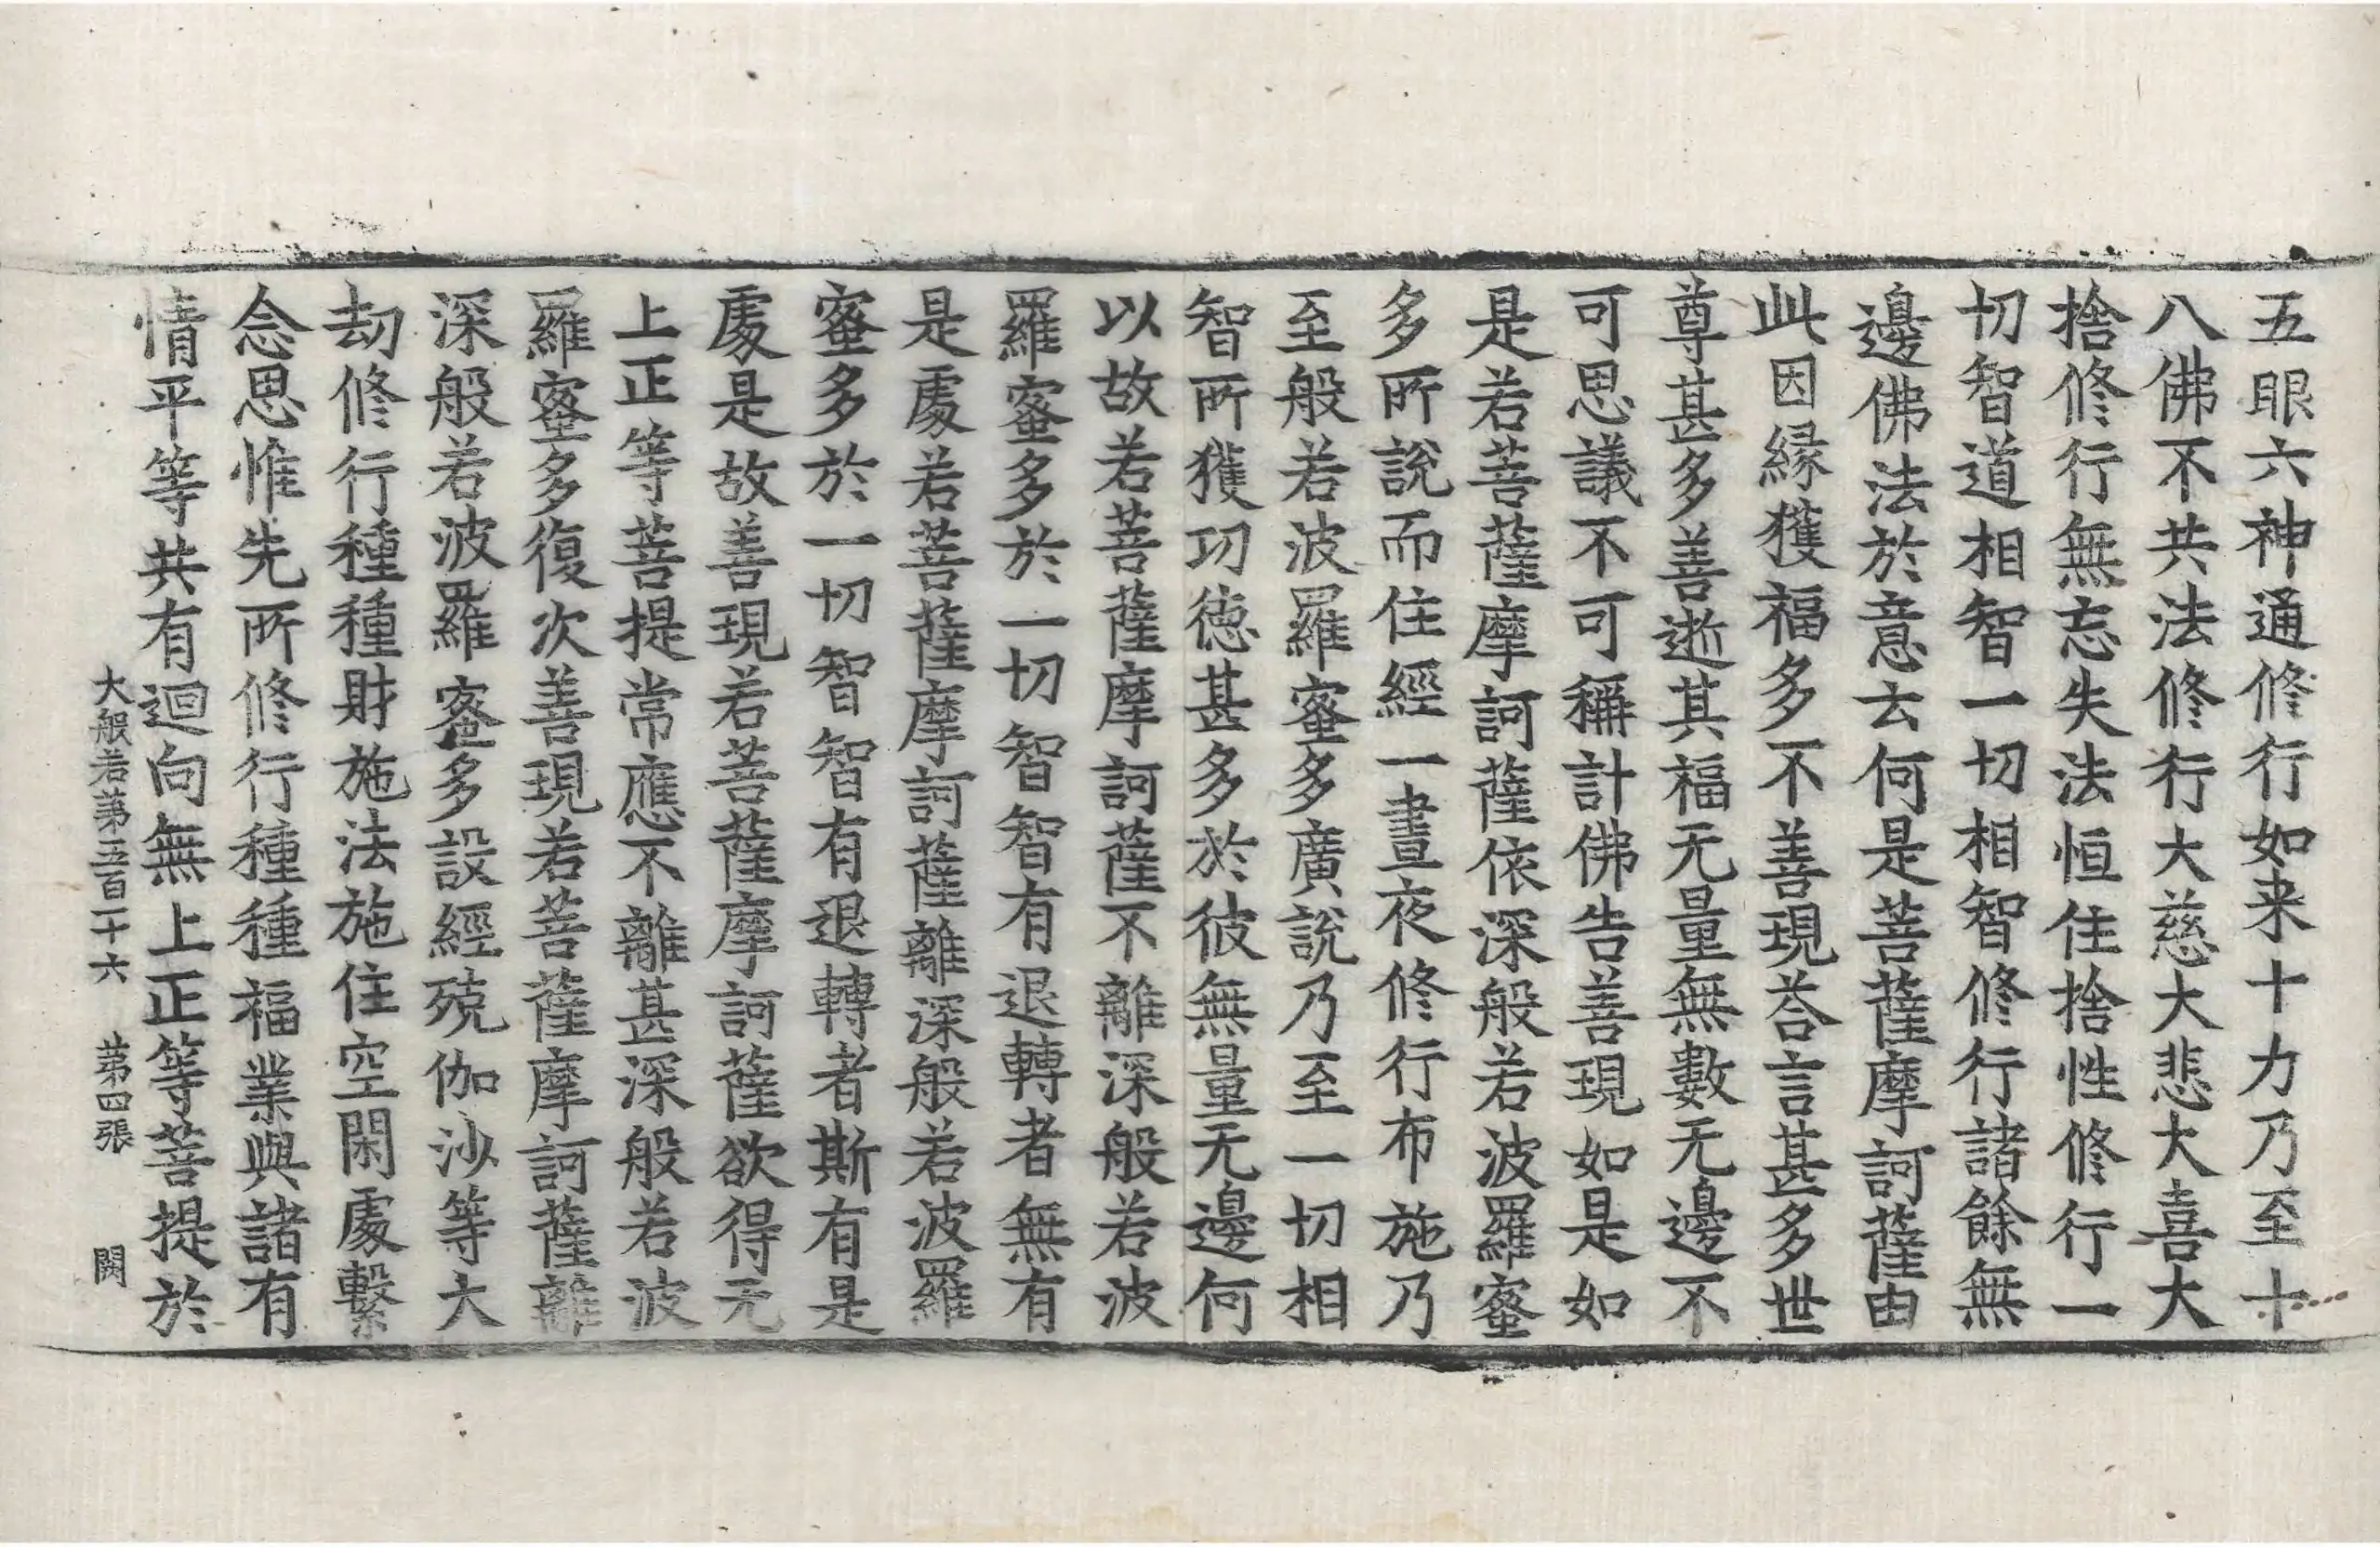 五眼六神通修行如来十力乃至十
八佛不共法修行大慈大悲大喜大
捨修行無忘失法恒住捨性修行一
切智道相智一切相智修行諸餘無
邊佛法於意云何是菩薩摩訶薩由
此因縁獲福多不善現荅言甚多世
尊甚多善逝其福无量無數无邊不
可思議不可稱計佛告善現如是如
是若菩薩摩訶薩依深般若波羅蜜
多所說而住經一晝夜修行布施乃
至般若波羅蜜多廣說乃至一切相
智所獲功德甚多於彼無量无邊何
以故若菩薩摩訶薩不離深般若波
羅蜜多於一切智智有退轉者無有
是處若菩薩摩訶薩離深般若波羅
蜜多於一切智智有退轉者斯有是
處是故善現若菩薩摩訶薩欲得无
上正等菩提常應不離甚深般若波
羅蜜多復次善現若菩薩摩訶薩離
深般若波羅蜜多設經殑伽沙等大
劫修行種種財施法施住空閑處繫
念思惟先所修行種種福業與諸有
情平等共有迴向無上正等菩提於
大般若第五百二十六 第四張 闕